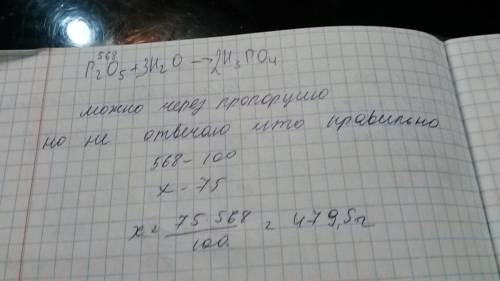 568
P₂O₅+3H₂O→2H₃PO₄
можно через пропорцию
но не отвечаю что правильно
568 – 100
x – 75
x = 75 568 / 100 = 479,5г